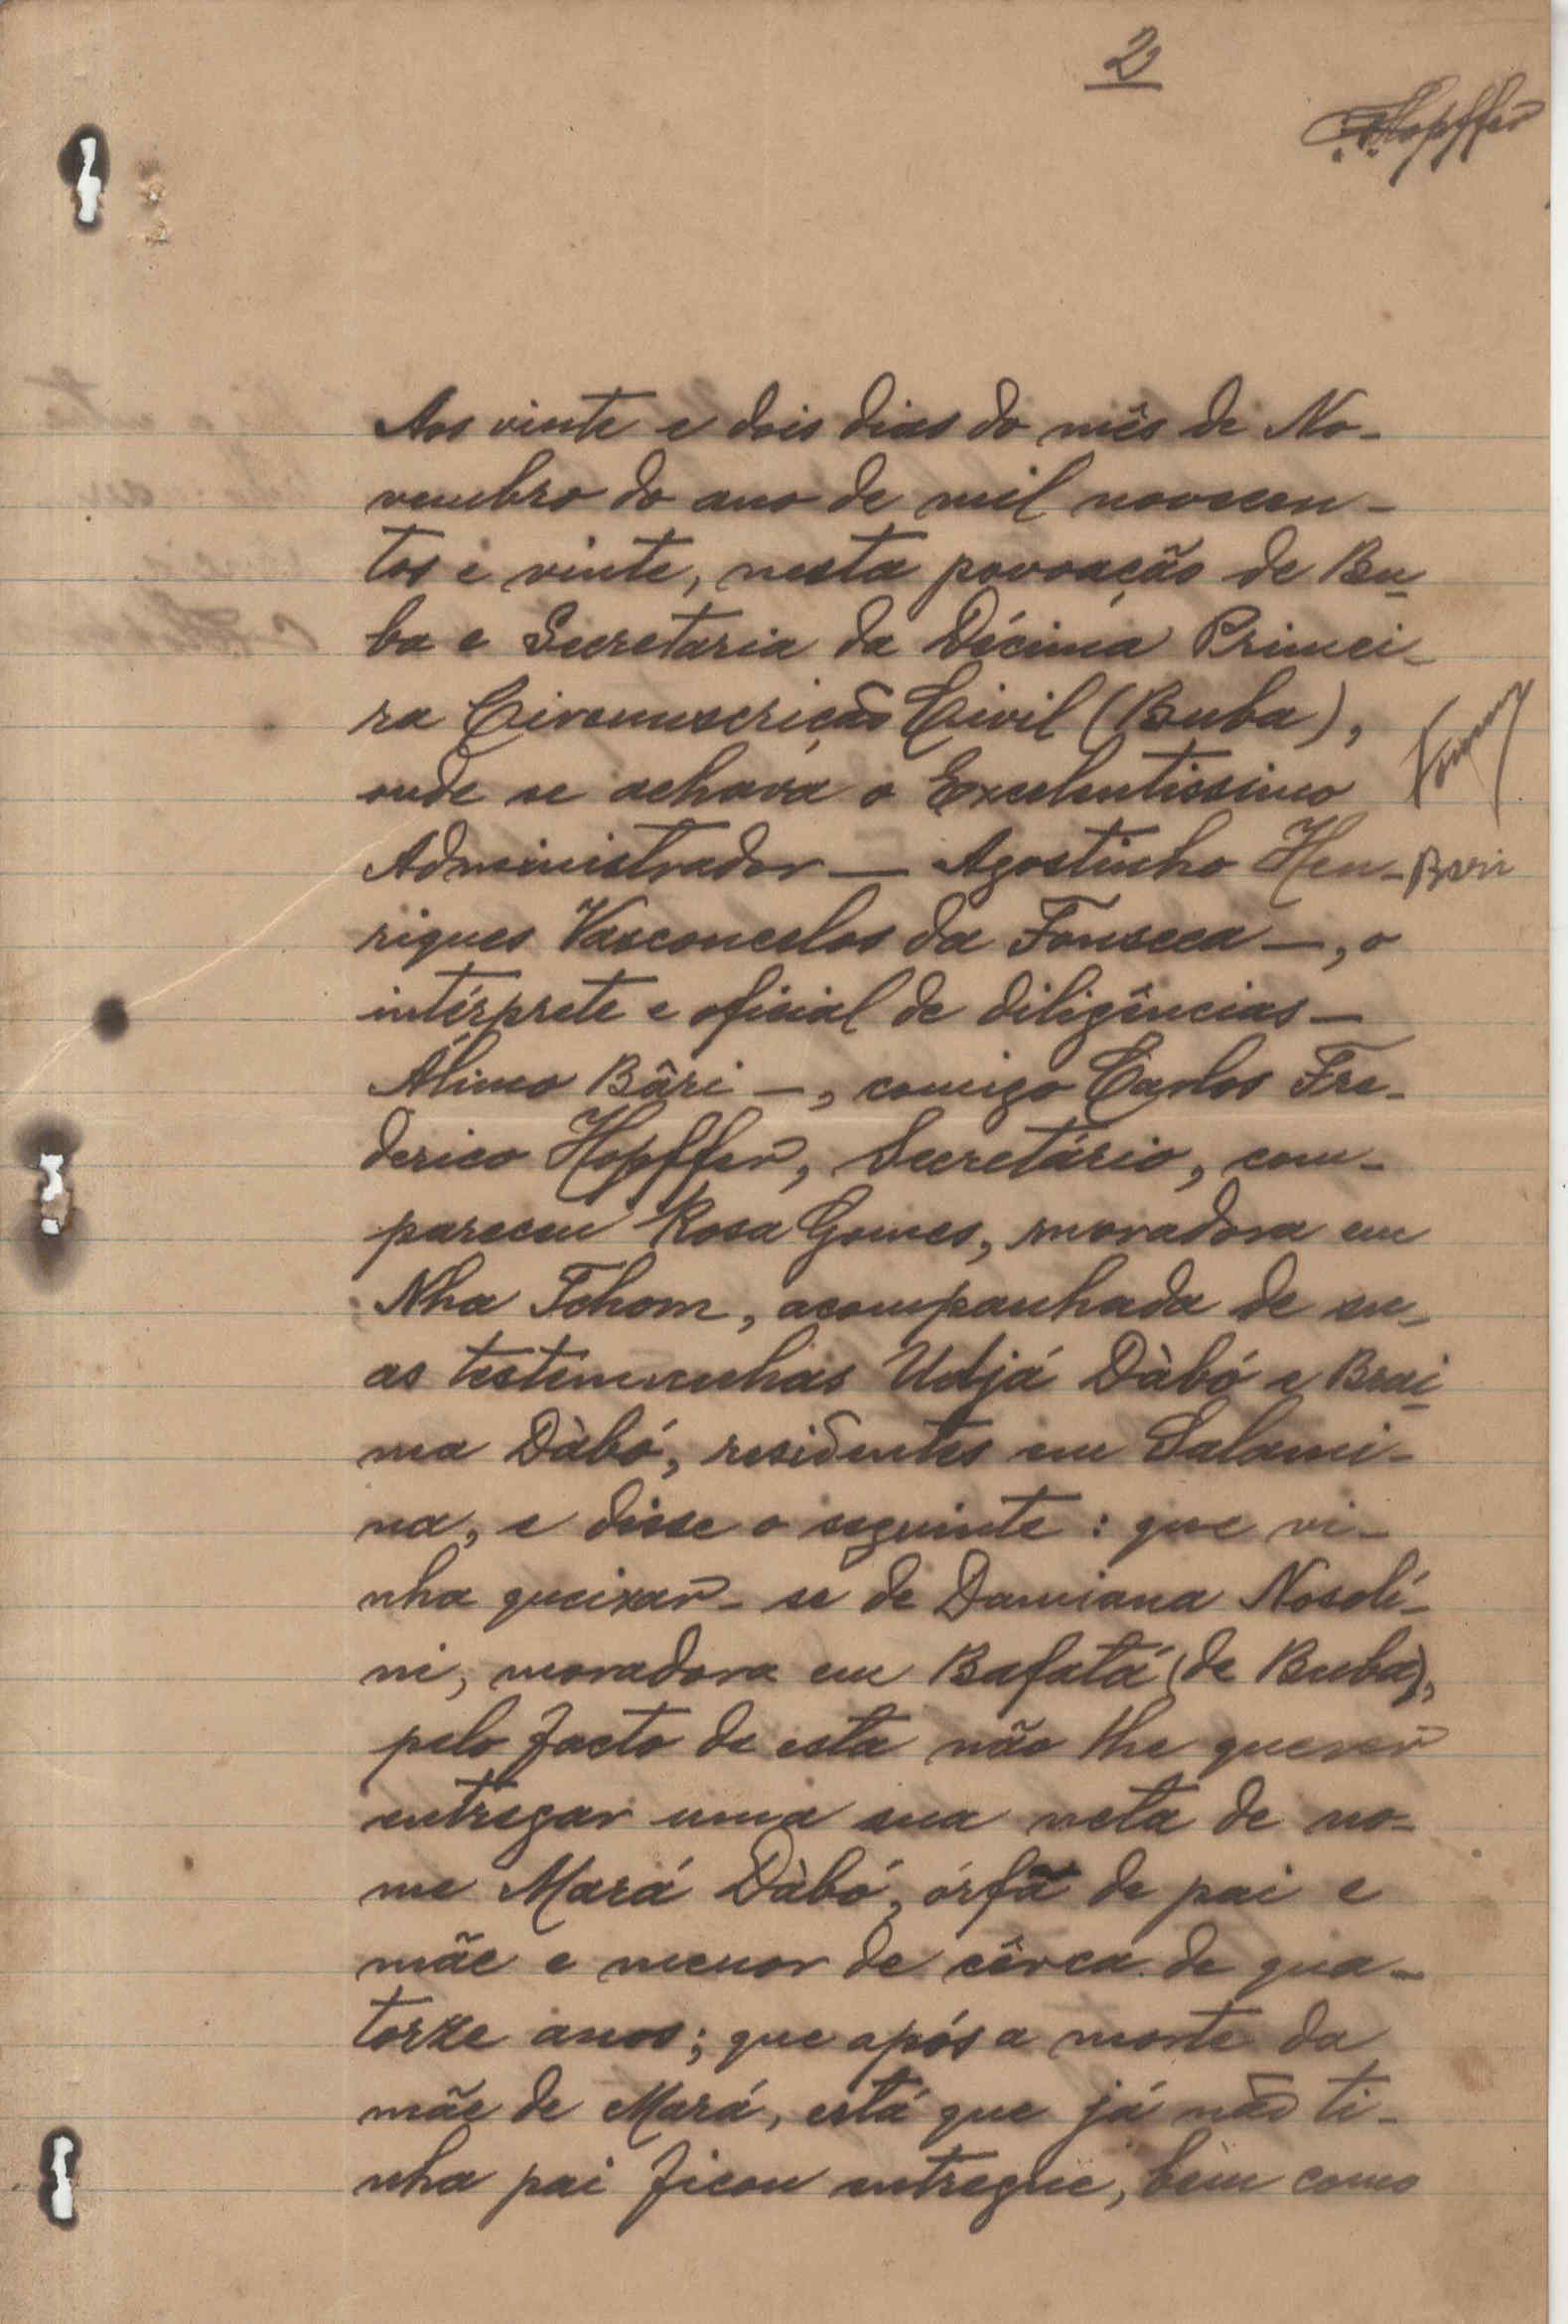 2
Hopffer
Aos vinte e dois dias do mês de No-
vembro do ano de mil novecen-
tos e vinte, nesta povoação de Bu-
ba e Secretaria da Décima Primei-
ra Circunscrição Civil (Buba),
onde se achava o Excelentissimo
Administrador — Agostinho Hen-
riques Vasconcelos da Fonseca —, o
intérprete e oficial de diligências —
Álimo Bâri —, comigo Carlos Fre-
derico Hopffer, Secretário, com-
pareceu Rosa Gomes, moradora em
Nha Tchom, acompanhada de su-
as testemunhas Udjá Dàbó e Brai-
ma Dàbó, residentes em Salami-
na, e disse o seguinte: que vi-
nha queixar-se de Damiana Nosolí-
ni, moradora em Bafatá (de Buba),
pelo facto de esta não lhe querer
entregar uma sua neta de no-
me Mará Dàbó, órfã de pai e
mãe e menor de cêrca de qua-
torze anos; que após a morte da
mãe de Mará, está que já não ti-
nha pai ficou entregue, bem como